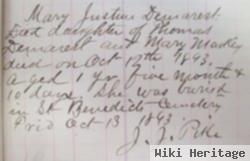 Mary Justina Demarest.
Last daughter of Thomas
Demarest and Mary Mackey
died on Oct 12th 1893,
aged 1 yr five month &
10 days. She was buried
in St Benedict Cemetery
Frid Oct 13 1893
J. J. Pike
Wiki Heritage